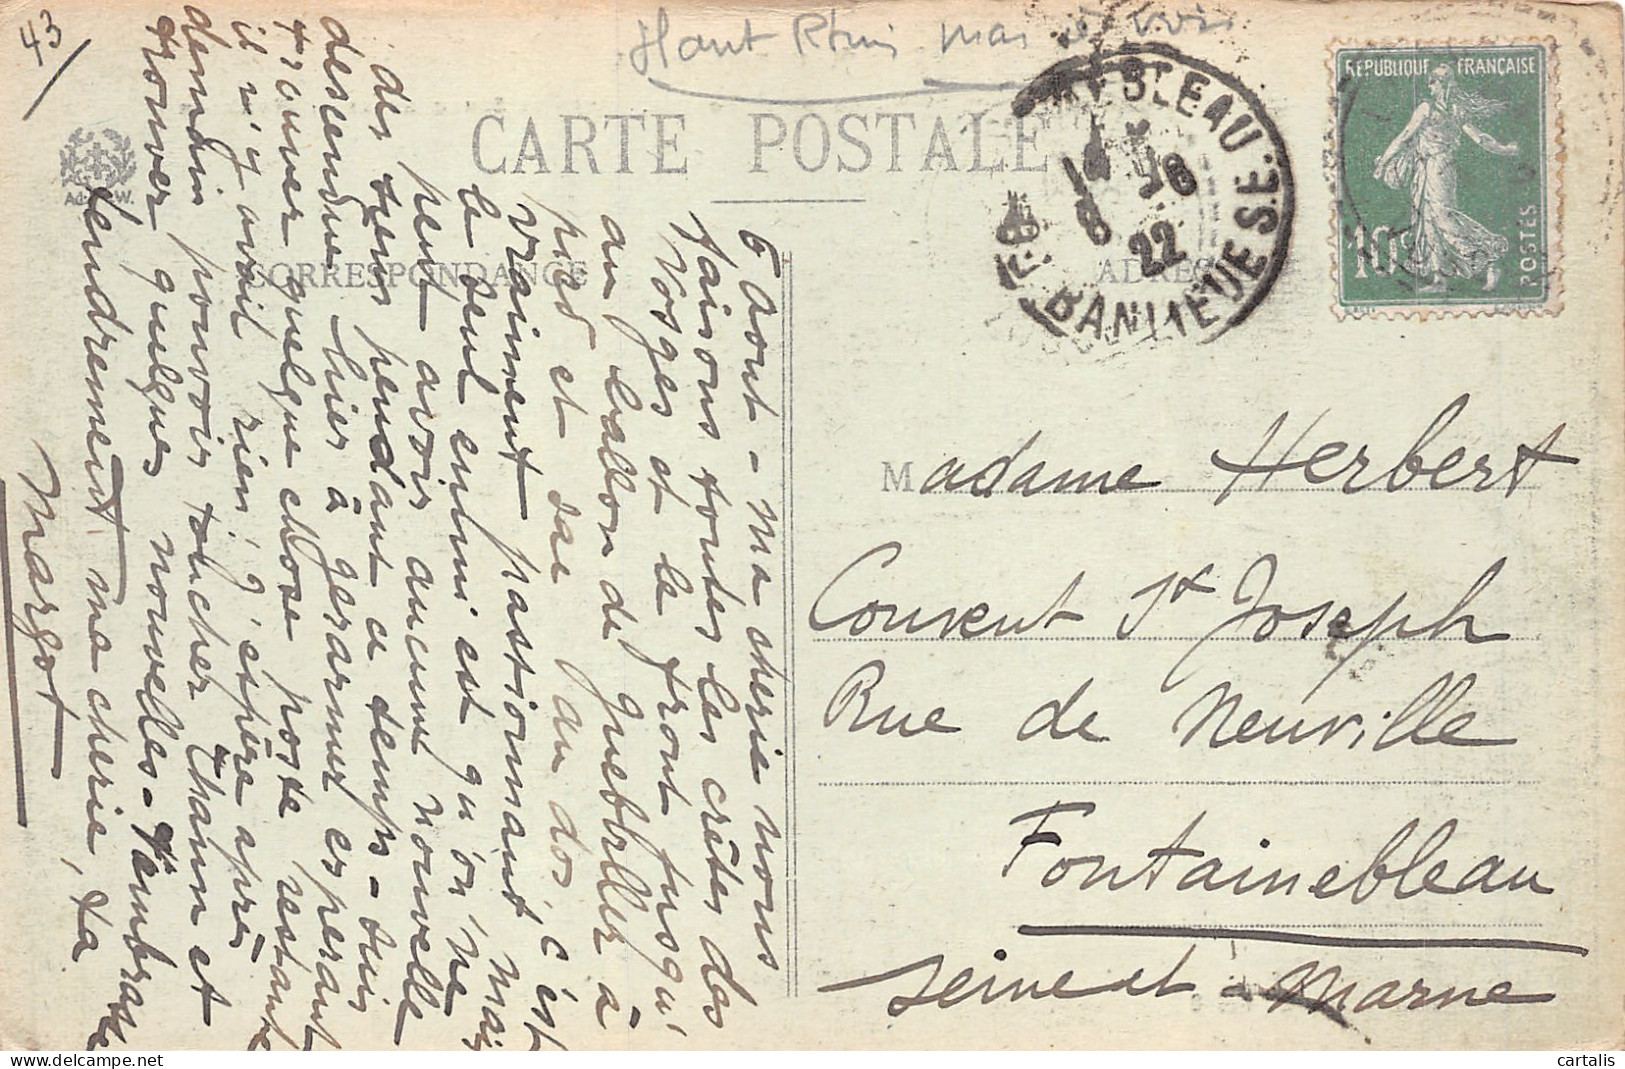 43
Haut Rhin mai
CARTE POSTALE
CORRESPONDANCE
ADRESSE
RÉPUBLIQUE FRANÇAISE
10c
POSTES
BLEAU
BANLIEUE S.E.
22
6 Aout - Ma cherie nous
faisons toutes les crêtes des
Vosges et le front jusqu'
au ballon de Guebviller à
pied et sac au dos, c'est
vraiment passionnant, mais
le seul ennui est qu'on ne
peut avoir aucune nouvelle
des siens pendant ce temps - suis
descendue hier à gerarmer esperant
trouver quelque chose poste restante
il n'y avait rien. J'espère après
demain pouvoir toucher Thann et
trouver quelques nouvelles - T'embrasse
tendrement ma cherie, ta
Margot
Madame Herbert
Couvent St Joseph
Rue de Neuville
Fontainebleau
Seine et Marne
delcampe.net
cartalis